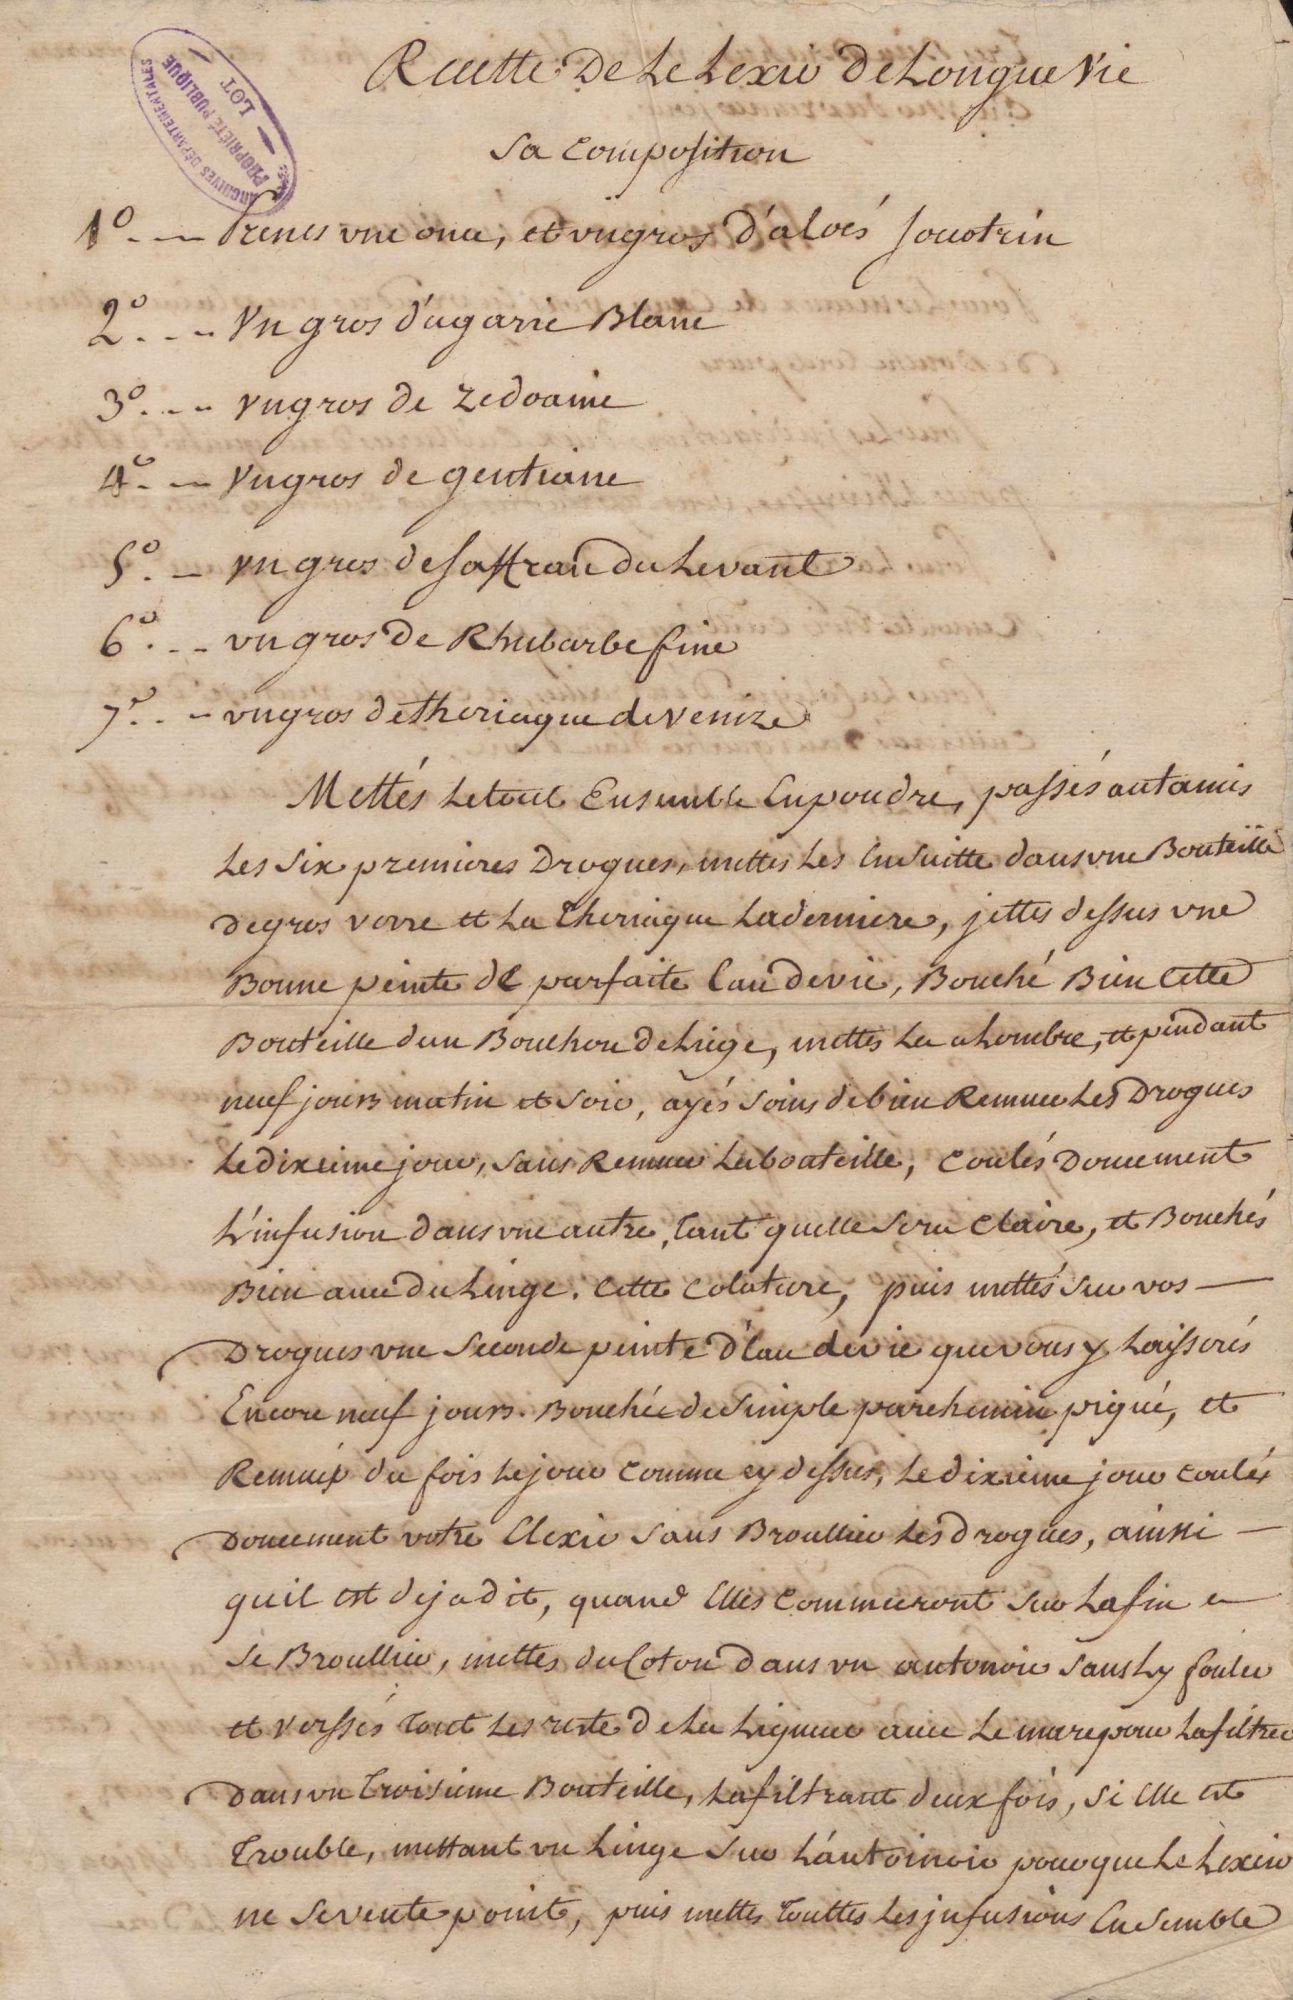 Recette De Le Lexir de Longue Vie
Sa Composition
ARCHIVES DÉPARTEMENTALES
PROPRIÉTÉ PUBLIQUE
LOT
1º. -- Prenes une once, et un gros d'aloés soucotrin
2º. -- Un gros d'agaric Blanc
3º. -- un gros de Zedoaine
4º. -- Un gros de gentiane
5º. -- un gros de saffran du Levant
6º. -- un gros de Rhubarbe fine
7º. -- un gros de theriaque de venize
Mettés Le tout Ensemble En poudre, passés au tamis
Les six premieres Drogues, mettes Les Ensuitte dans une Bouteille
De gros verre et La Theriaque La derniere, jettes dessus une
Bonne peinte de parfaite Eau de vie, Bouché Bien Cette
Bouteille d'un Bouchon de Liege, mettes La a Lombre, et pendant
neuf jours matin et soir, ayés soins de bien Remuer Les Drogues
Le dixieme jour, sans Remuer La bouteille, coulés Doucement
L'infusion dans une autre, Tant quelle sera Claire, et Bouchés
Bien avec du Linge. Cette Colature, puis mettés sur vos —
Drogues une seconde peinte d'Eau de vie que vous y Laisserés
Encore neuf jours. Bouchée de simple parchemin piqué, et
Remuéx du fois Le jour comme cy dessus, Le dixieme jour coulés
Doucement votre Elexir sans Broullier Les drogues, ainssi —
quil est deja dit, quand Elles commenceront sur La fin a
se Broullier, mettes du Coton Dans un antonoir sans Ly fouler
et versses Tout Les reste de La Liqueur avec Le marc pour La filtrer
Dans un Troisieme Bouteille, La filtrant deux fois, si Elle est
Trouble, mettant un Linge sur L'antoinoir pour que Le Lexir
ne s'evente point, puis mettes Touttes Les infusions Ensemble